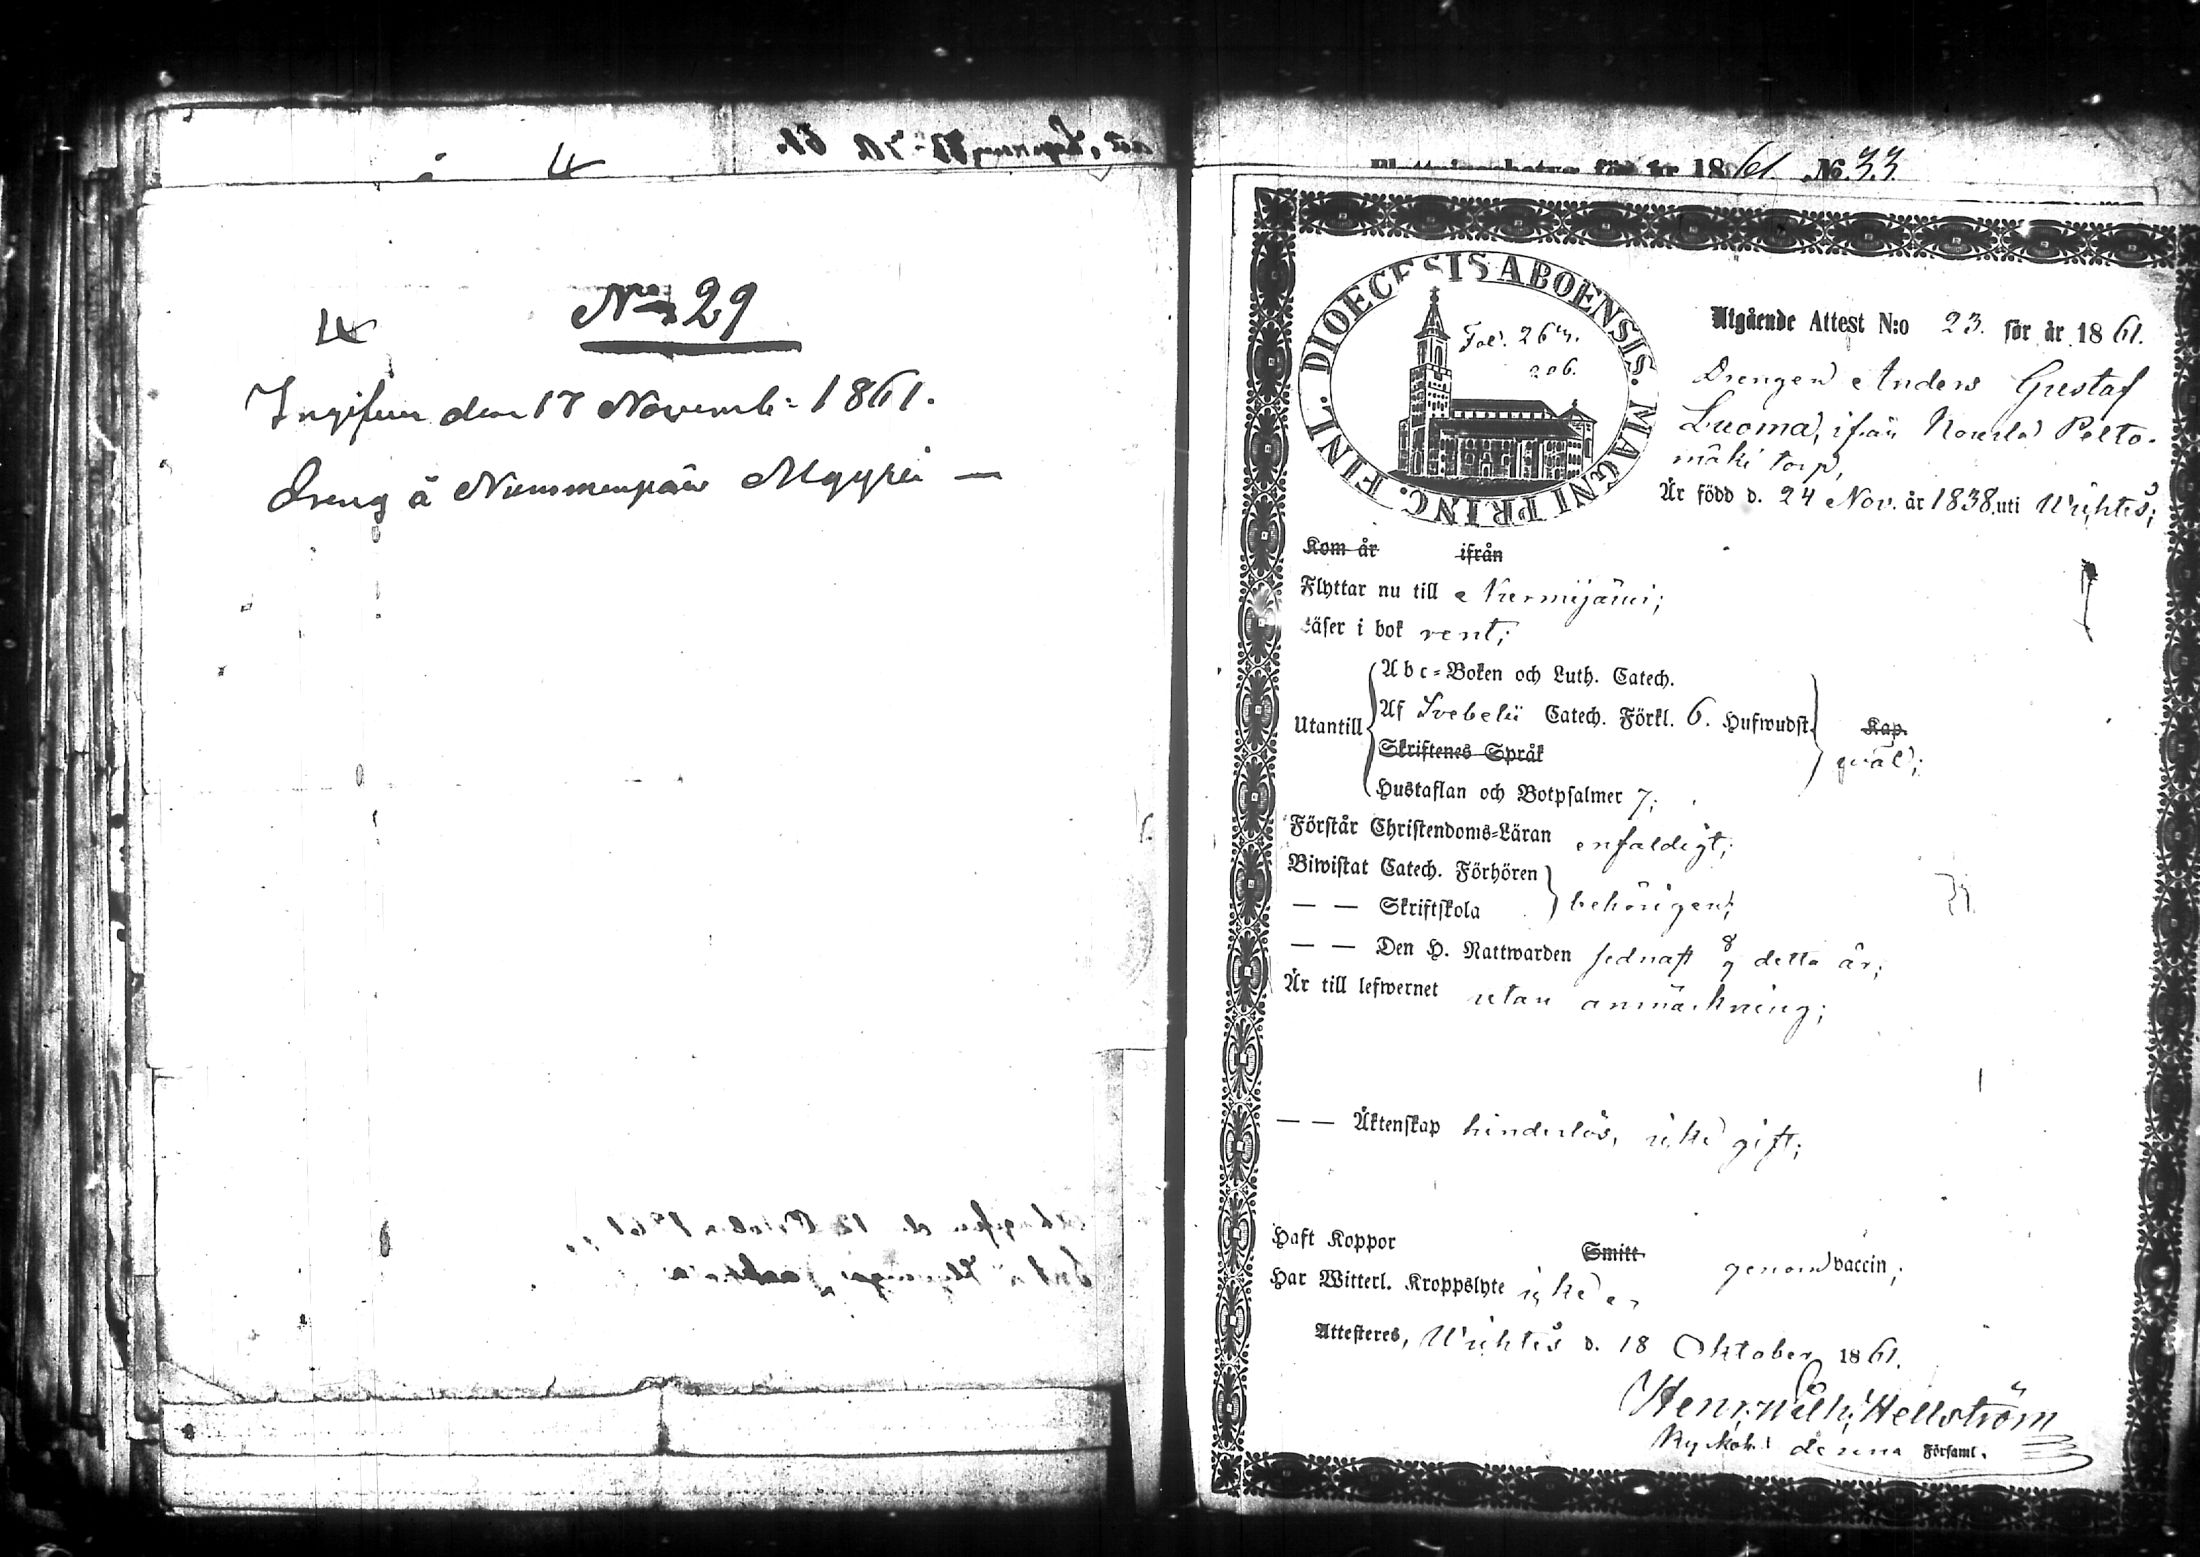 4
No 29
4
Ingifven den 17 Novemb: 1861.
Dreng å Nummenpää Myyri —
Flyttningsbetyg för år 1861 No 33
FINL. DIOECESIS ABOENSIS. MAGNI PRINC.
Fol. 264.
206.
Utgående Attest N:o 23. för år 1861.
Drengen Anders Gustaf
Luoma, ifrån Pelto-
mäki torp,
Är född d. 24 Nov. år 1838. uti Wichtis;
Kom år ifrån
Flyttar nu till Nurmijärvi;
Läser i bok rent;
Utantill
Abc-Boken och Luth. Catech.
Af Svebelii Catech. Förkl. 6. Hufwudst. Kap.
Skriftenes Språk
Hustaflan och Botpsalmer 7;
Förstår Christendoms-Läran enfaldigt;
Biwistat Catech. Förhören
— — Skriftskola behörigen;
— — Den H. Nattwarden sednast detta år;
Är till lefwernet utan anmärkning;
— — Äktenskap hinderlös, icke gift;
Haft Koppor Smitt genom vaccin;
Har Witterl. Kroppslyte icke
Attesteres, Wichtis d. 18 Oktober 1861.
Henr. Wilh. Hellström
denna Församl.